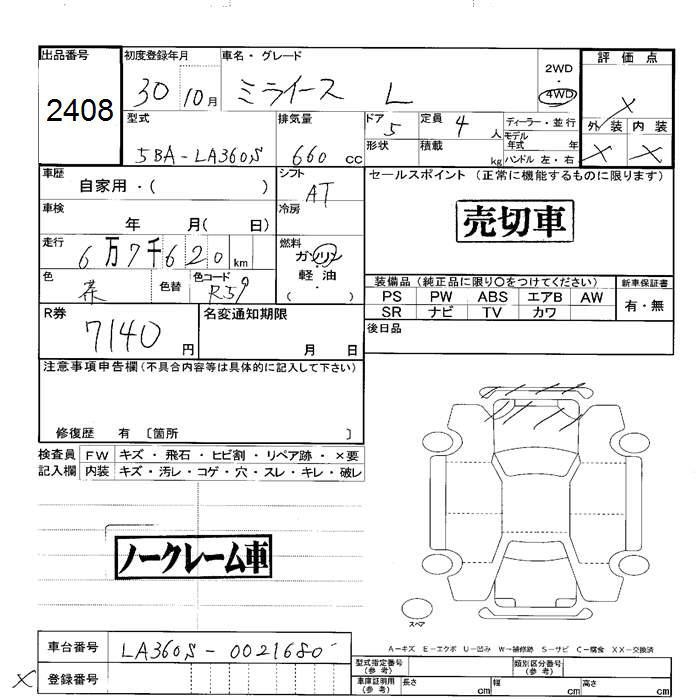 出品番号
2408
初度登録年月
30 10月
車名・グレード
ミライース L
2WD
・
4WD
評価点
×
外装 内装
× ×
型式
5BA-LA360S
排気量
660 cc
ドア
5
形状
定員
4 人
積載
kg
ディーラー・並行
モデル年式 年
ハンドル 左・右
車歴
自家用・( )
シフト
AT
冷房
車検
年 月( 日)
走行
6万7千620 km
燃料
ガソリン
軽・油
( )
色
茶
色替
色コード
R59
R券
7140 円
名変通知期限
月 日
セールスポイント(正常に機能するものに限ります)
売切車
装備品(純正品に限り○をつけてください)
PS PW ABS エアB AW
SR ナビ TV カワ
新車保証書
有・無
後日品
注意事項申告欄(不具合内容等は具体的に記入して下さい)
修復歴 有 〔箇所 〕
検査員記入欄
FW キズ・飛石・ヒビ割・リペア跡・×要
内装 キズ・汚レ・コゲ・穴・スレ・キレ・破レ
ノークレーム車
スペア
A=キズ E=エクボ U=凹み W=補修跡 S=サビ C=腐食 XX=交換済
車台番号
LA360S-0021680
× 登録番号
型式指定番号(参考)
類別区分番号(参考)
車庫証明用(参考)
長さ cm
幅 cm
高さ cm